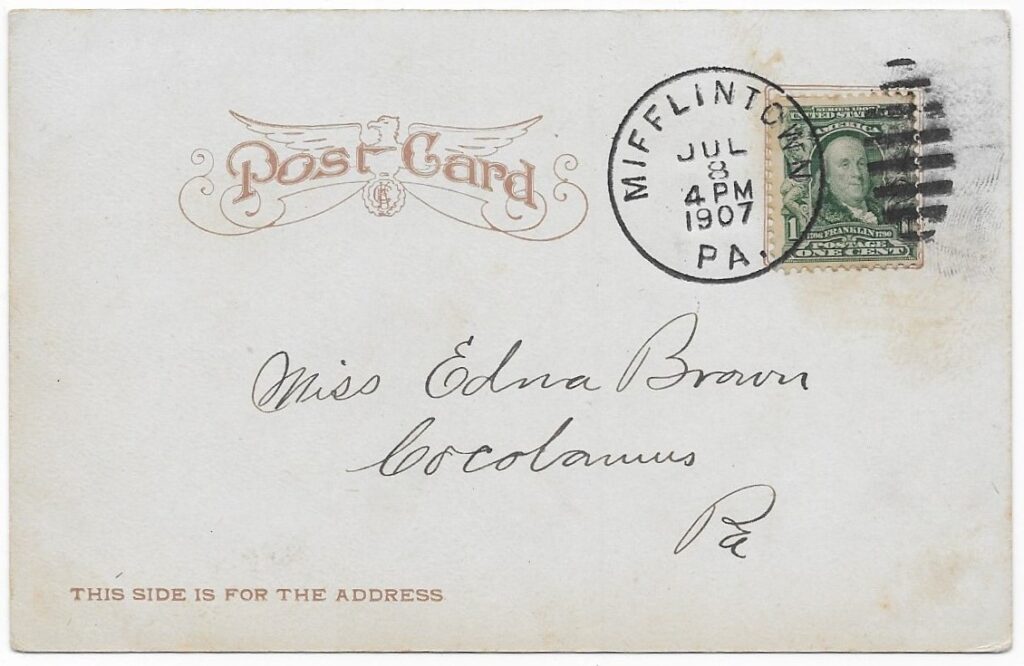 Post Card
MIFFLINTOWN
JUL
8
4 PM
1907
PA.
SERIES 1902
UNITED STATES
AMERICA
1
1706 FRANKLIN 1790
POSTAGE
ONE CENT
Miss Edna Brown
Cocolamus
Pa
THIS SIDE IS FOR THE ADDRESS